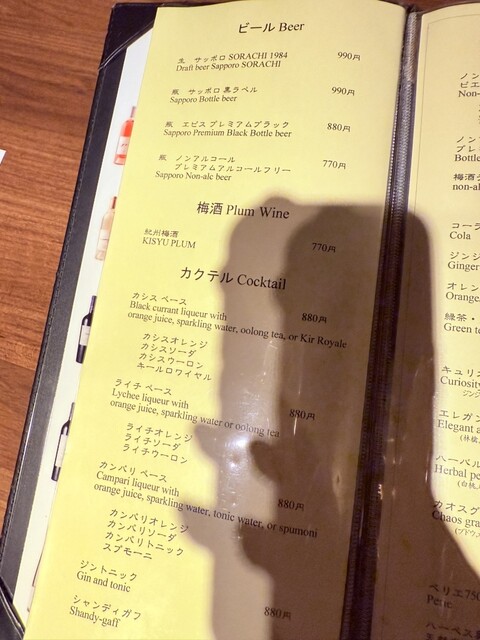 ビール Beer
生 サッポロ SORACHI 1984 990円
Draft beer Sapporo SORACHI
瓶 サッポロ 黒ラベル 990円
Sapporo Bottle beer
瓶 エビス プレミアムブラック 880円
Sapporo Premium Black Bottle beer
瓶 ノンアルコール
プレミアムアルコールフリー 770円
Sapporo Non-alc beer
梅酒 Plum Wine
紀州梅酒
KISYU PLUM 770円
カクテル Cocktail
カシス ベース
Black currant liqueur with 880円
orange juice, sparkling water, oolong tea, or Kir Royale
カシスオレンジ
カシスソーダ
カシスウーロン
キールロワイヤル
ライチ ベース
Lychee liqueur with 880円
orange juice, sparkling water or oolong tea
ライチオレンジ
ライチソーダ
ライチウーロン
カンパリ ベース
Campari liqueur with 880円
orange juice, sparkling water, tonic water, or spumoni
カンパリオレンジ
カンパリソーダ
カンパリトニック
スプモーニ
ジントニック
Gin and tonic
シャンディガフ 880円
Shandy-gaff
ノン
ビエ
Non-
ノン
プレ
Bottle
梅酒
non-al
コーラ
Cola
ジンジ
Ginger
オレン
Orange
緑茶・
Green te
キュリオ
Curiosity
エレガン
Elegant a
ハーバル
Herbal pe
カオスグ
Chaos gra
ペリエ750